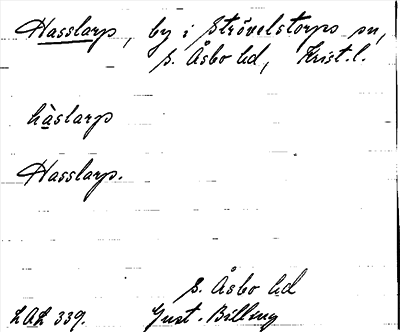 Hasslarp, by i Strövelstorps sn,
S. Åsbo hd, Krist. l.
hàslarp
Hasslarp.
S. Åsbo hd
LAL 339. Gust. Billing